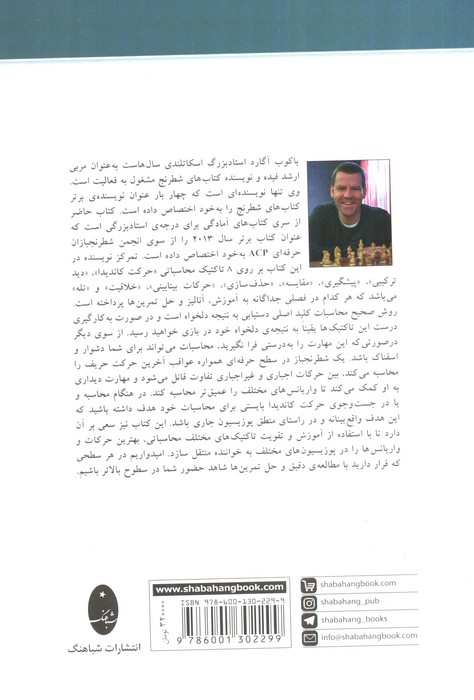 یاکوب آگارد استادبزرگ اسکاتلندی سال‌هاست به‌عنوان مربی
ارشد فیده و نویسنده کتاب‌های شطرنج مشغول به فعالیت است.
وی تنها نویسنده‌ای است که چهار بار عنوان نویسنده‌ی برتر
کتاب‌های شطرنج را به‌خود اختصاص داده است. کتاب حاضر
از سری کتاب‌های آمادگی برای درجه‌ی استادبزرگی است که
عنوان کتاب برتر سال ۲۰۱۳ را از سوی انجمن شطرنجبازان
حرفه‌ای ACP به‌خود اختصاص داده است. تمرکز نویسنده در
این کتاب بر روی ۸ تاکتیک محاسباتی «حرکت کاندیدا»، «دید
ترکیبی»، «پیشگیری»، «مقایسه»، «حذف‌سازی»، «حرکات بینابینی»، «خلاقیت» و «تله»
می‌باشد که هر کدام در فصلی جداگانه به آموزش، آنالیز و حل تمرین‌ها پرداخته است.
روش صحیح محاسبات کلید اصلی دستیابی به نتیجه دلخواه است و در صورت به‌کارگیری
درست این تاکتیک‌ها یقیناً به نتیجه‌ی دلخواه خود در بازی خواهید رسید. از سوی دیگر
درصورتی‌که این مهارت را به‌درستی فرا نگیرید، محاسبات می‌تواند برای شما دشوار و
اسفناک باشد. یک شطرنجباز در سطح حرفه‌ای همواره عواقب آخرین حرکت حریف را
محاسبه می‌کند. بین حرکات اجباری و غیراجباری تفاوت قائل می‌شود و مهارت دیداری
به او کمک می‌کند تا واریانس‌های مختلف را عمیق‌تر محاسبه کند. در هنگام محاسبه و
یا در جست‌وجوی حرکت کاندیدا بایستی برای محاسبات خود هدف داشته باشید که
این هدف واقع‌بینانه و در راستای منطق پوزیسیون جاری باشد. این کتاب نیز سعی بر آن
دارد تا با استفاده از آموزش و تقویت تاکتیک‌های مختلف محاسباتی، بهترین حرکات و
واریانس‌ها را در پوزیسیون‌های مختلف به خواننده منتقل سازد. امیدواریم در هر سطحی
که قرار دارید با مطالعه‌ی دقیق و حل تمرین‌ها شاهد حضور شما در سطوح بالاتر باشیم.
شباهنگ
انتشارات شباهنگ
www.shabahangbook.com
ISBN 978-600-130-229-9
9 786001 302299
۳۲۰۰۰۰ تومان
shabahangbook.com
shabahang_pub
shabahang_books
info@shabahangbook.com